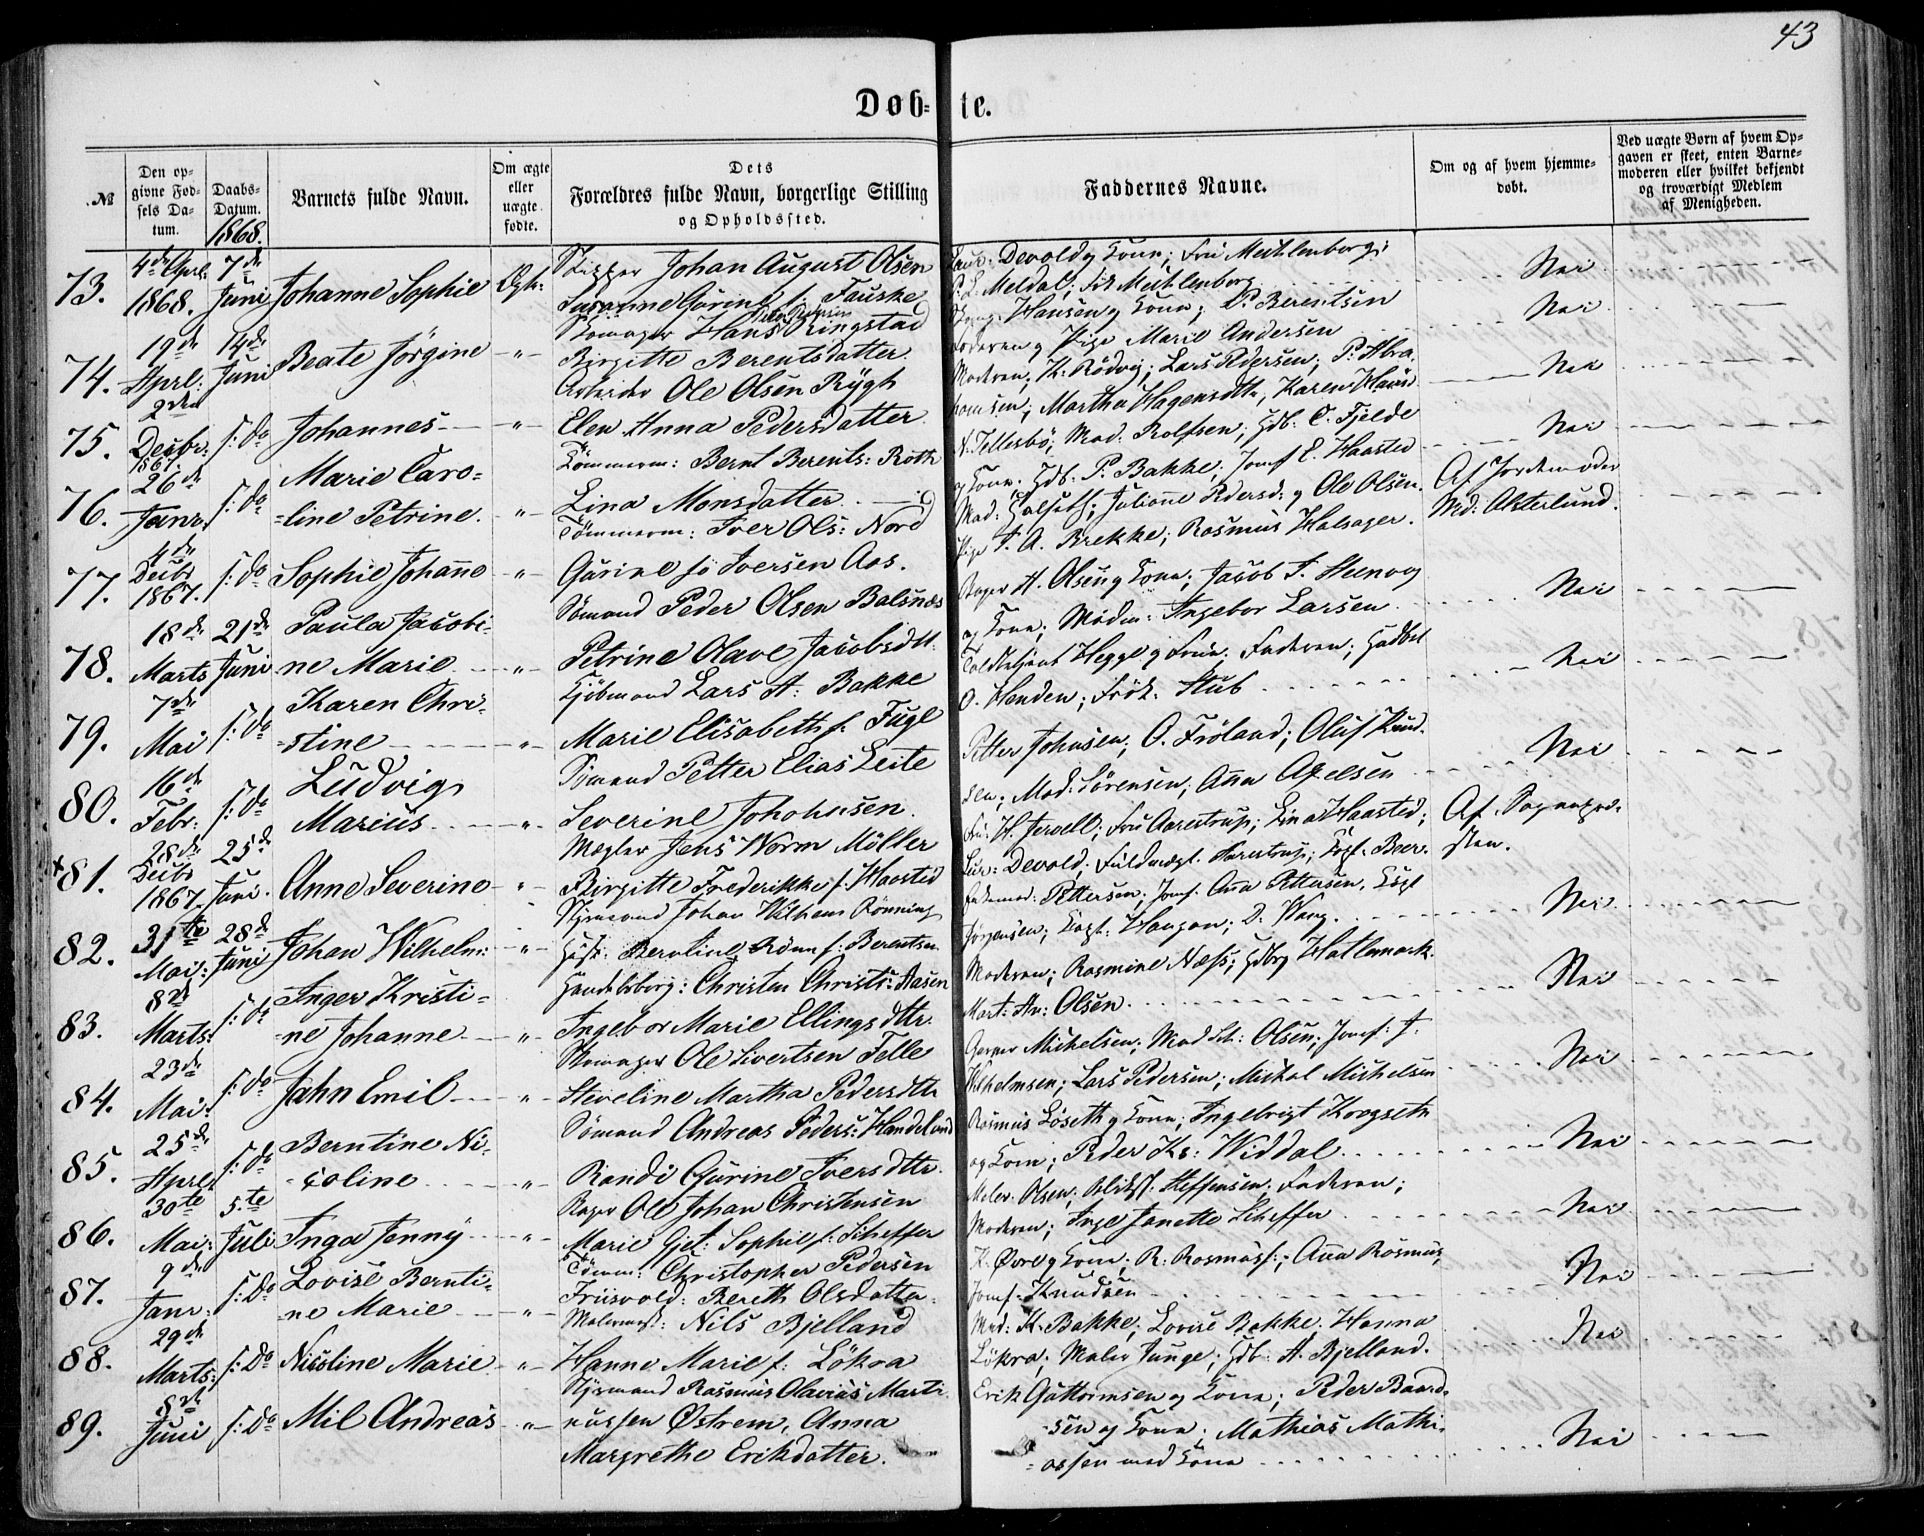 43
Døb- te.
№
Den opgivne Fødsels Datum.
Daabs-Datum. 1868.
Barnets fulde Navn.
Om ægte eller uægte fødte.
Dets Forældres fulde Navn, borgerlige Stilling og Opholdssted.
Faddernes Navne.
Om og af hvem hjemmedøbt.
Ved uægte Børn af hvem Opgaven er skeet, enten Barnemoderen eller hvilket bekjendt og troværdigt Medlem af Menigheden.
73. 4de Aprl: 1868. 7de Juni Johanne Sophie Ægte
Skipper Johan August Olsen
Susanne Gurine f. Fauske
Devold og Kone; Fru Muhlenborg;
P. L. Meldal; Muhlenborg
Nei
74. 19de Aprl: 14de Juni Beate Jörgine -"-
Skomager Hans Ringstad
Birgitte Berentsdatter.
Hansen og Kone; P. Berentsen
Faderen og Pige Marie Andersen
Nei
75. 2den Decbr: 1867. s: Do Johannes -"-
Arbeider Ole Olsen Rygh
Elen Anna Pedersdatter
Moderen; K. Rödvig; Lars Pedersen; P. Abra-
hamsen; Martha Hagensdtr, Karen
Nei
76. 26de Janr. s: Do Marie Caro-
=line Petrine. -"-
Tømmerm: Bernt Berents: Roth
Lina Monsdatter.
N. Tellesbö; Mad. Rolfsen; Gdb. C. Fjelde
og Kone. Gdb: P. Bakke; Jomf. E. Haasted
Nei
77. 4de Decbr 1867. s: Do Sophie Johañe -"-
Tømmerm: Iver Ols: Nord
Gurine Iversen Aas.
Mad: Galseth; Juliane Pedersd: og Ole Olsen.
Pige T. A. Brekke; Rasmus Halsager.
Af Jordemoder
Md: Akterlund.
78. 18de Marts 21de Juni Paula Jacobi-
ne Marie -"-
Sømand Peder Olsen Balsnæs
Petrine Olave Jacobsdtt.
H. Olsen og Kone; Jacob T.
og Kone; Madm: Ingebor Larsen
Nei
79. 7de Mai s: Do Karen Chri-
=stine -"-
Kjøbmand Lars A: Bakke
Marie Elisabeth f. Fugl
Hegge og Frue; Faderen;
O. Handen; Frök. Stub
Nei
80. 16de Febr: s: Do Ludvig
Marius -"-
Sømand Petter Elias Leite
Severine Johahnsen.
Petter Johnsen; O. Fröland; Oluf Knud-
sen; Mad. Sörensen; Aña Axelsen
Nei
+81. 28de Decbr 1867. 25de Juni. Anne Severine -"-
Mægler Jens Worm Möller
Birgitte Frederikke f. Haasted
Fru H. Jervell; Fru Aarestrup; Lina Haasted;
Devold; Fuldmægt. Aarestrup;
Af Sognepre-
sten.
82. 31te Mai: 28de Juni Johan Wilhelm: -"-
Styrmand Johan Wilhem Rönning
Hust: Berntine Rönn f: Berentsen
Pettersen; Jomf. Aña Pettersen,
Jörgensen; Kapt: Haugan; D. Wang.
Nei
83. 8de Marts: s: Do Inger Kristi-
=ne Johanne -"-
Handelsborg: Christen Christs: Aasen
Ingebor Marie Ellingsdtr.
Moderen; Rasmine Næss; Gdbrg Hatlemark.
Mart: An: Olsen.
Nei
84. 23de Mai: s: Do Jahn Emil -"-
Skomager Ole Sivertsen Felle
Steveline Martha Pedersdtr
Garver Mikelsen; Mad Sch: Olsen; Jomf: J.
Wilhelmsen; Lars Pedersen; Mikal Mikelsen
Nei
85. 25de Aprl: s: Do Berntine Ni-
-coline -"-
Sømand Andreas Peders: Handeland
Randi Gurine Iversdtr.
Rasmus Löseth og Kone; Ingebrigt Krogsetr
og Kone; Peder Ks: Widdal
Nei
86. 30te Mai: 5.te Juli Inga Jenny -"-
Bager Ole Johan Christensen
Marie Gjet: Sophie f: Scheffer
Maler. Olsen; Steffensen; Faderen;
Moderen; Inge Janette Scheffer
Nei
87. 9de Janr: s: Do Lovise Bernti-
=ne Marie -"-
Tömm: Christopher Pedersen
Friisvold: Bereth Olsdatter.
K. Øvre og Kone; R. Rasmuss:; Aña Rasmus,
Jomf. Knudsen
Nei
88. 29de Marts: s: Do Nicoline Marie -"-
Malermst: Nils Bjelland
Hanne Marie f: Lökra
Mad: K. Bakke; Lovise Bakke. Hanna
Lökra; Maler Junge; Gdb: A. Bjelland.
Nei
89. 8de Juni s: Do Mil Andreas -"-
Styrmand Rasmus Olavius Marti-
nussen Østrem, Anna
Margrethe Eriksdatter.
Erik Guttormsen og Kone; Peder Baard-
-sen og Kone; Mathias Mathi-
=assen med Kone
Nei